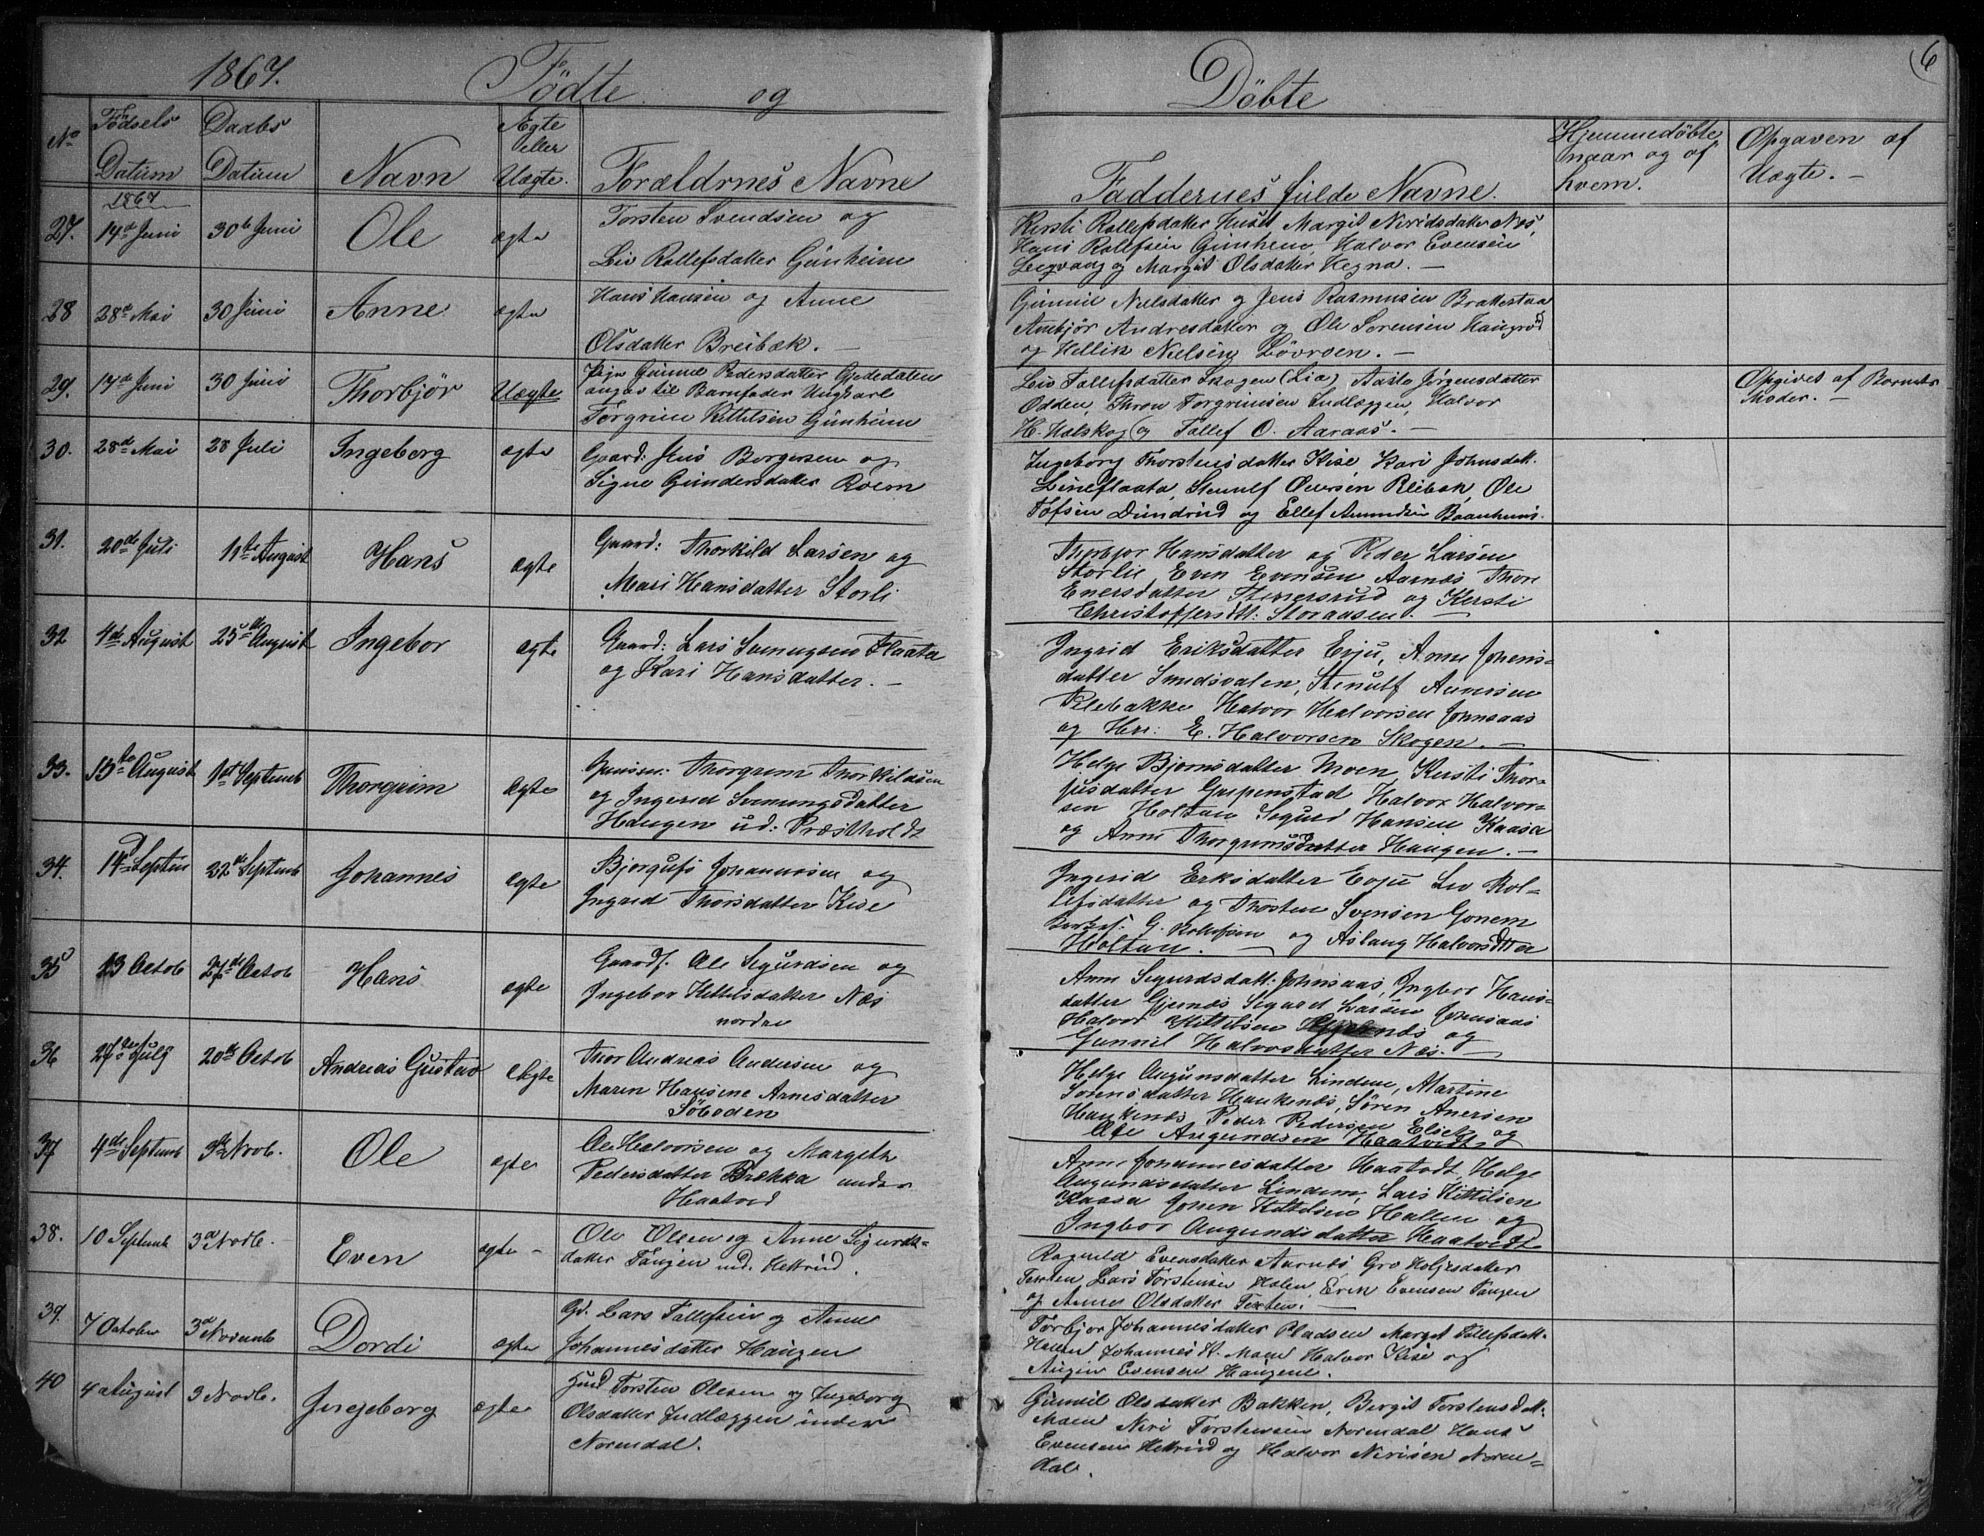 1867. Födte og Döbte 6
No
Födsels Datum
Daabs Datum
Navn
Ægte eller Uægte.
Forældrnes Navne
Faddernes fulde Navne.
Hjemmedöbte naar og af hvem.
Opgaven af Uægte. —
1867
27. 14de Juni 30te Juni Ole ægte
Torsten Svendsen og
Liv Rollefsdatter Gunheim
Kersti Rollefsdatter Huset Margit Neridsdatter Næs,
Hans Rollefsen Gunheim, Halvor Evensen
og Margit Olsdatter Hegna. —
28 28de Mai 30 Juni Anne ægte
Hans Hansen og Anne
Olsdatter Breibæk. —
Gunnil Nielsdatter og Jens Rasmusen
Anbjör Andresdatter og Ole Sorensen
og Hellik Nielsen Lövrsen. —
29. 17de Juni 30 Juni Thorbjör Uægte
Pige Gunnil Pedersdatter Gjededalen
angav til Barnfader Ungkarl
Torgrim Kittilsen Gunheim
Liv Tollefsdatter Skogen (Lia), Aaste Jörgensdatter
Odden, Thron Torgrimsen Indlæggen, Halvor
H. Holskog og Tollef O. Aaraas. —
Opgives af Barnets
Moder. —
30. 28de Mai 28 Juli Ingeborg ægte
Gaard: Jens Borgersen og
Signe Gundersdatter Roem
Ingeborg Thorstensdatter Kise, Kari Johnsdatt.
Stenulf Oversen Plibak, Ole
Tofsen Dundrud og Ellef Amundsen
31. 20de Juli 11te August Hans ægte
Gaard: Thorkild Larsen og
Mari Hansdatter Storli
Thorbjor Hansdatter og Peder Larsen
Storlie Even Evensen Aarnæs Thore
Enersdatter Stenersrud og Kersti
Christoffersdtt: Storaasen. —
32 4de August 25de August Ingebor ægte
Gaard: Lars Flaata
og Kari Hansdatter. —
Ingrid Eriksdatter Evju, Anne Johans-
datter Smedsvalen, Stenulf Aversen
Plebakke Halvor Halvorsen Jonsaas
og E. Halvorsen Skogen. —
33. 15te August 1st Septemb Thorgrim ægte
Thorgrim Thorkildsen
og Ingerid Sveinungsdatter
Haugen ud: Præstholdt
Helge Bjornsdatter Moen, Kersti Thor-
jusdatter Gripenstad Halvor Halvor-
sen Holtan Sigurd Hansen Kaasa
og Anne Thorgrimsdatter Haugen. —
34. 14d Septem 22de Septemb Johannes ægte
Bjorgufs Johannesen og
Ingrid Thorsdatter Kise
Ingerid Eriksdatter Evju Liv Rol-
lefsdatter og Thosten Svensen Gonem
G. Rolvfsen og Aslaug Halvorsdtta
Holtan.
35 13 Octob 27de Octob Hans ægte
Gaardf. Ole Sigurdsen og
Ingebor Kittilsdatter Næs
nordre
Anne Sigurdsdatt: Johnsaas, Ingbor Hans-
datter Gjernes Sigurd Larsen Jorensaas
Halvor Kittilsen og
Gunnil Halvorsdatter Næs. —
36 27de July 20de Octob Andreas Gustav Ægte
Thor Andreas Andersen og
Maren Hansine Arnesdatter
Söboden
Helge Augunsdatter Lindem, Martine
Sorensdatter Haukenæs, Sören Anersen
Haukenæs Peder Pedersen og
Ole Augundsen Haatvedt
37 4de Septemb 3de Novb. Ole ægte
Ole Halvorsen og Margethe
Pedersdatter Brekka under
Haatved
Anne Johannesdatter Haatvedt, Helge
Augundsdatter Lindem, Lars Kittilsen
Kaasa Joren Kittilsen Hallen og
Ingbor Augundsdatter Haatvedt
38. 10 Septemb 3d Novb. Even ægte —
Ole Olsen og Anne Sigurds-
datter Tangen und. Hettrud.
Ragnild Evensdatter Aarnæs Gro Holjesdatter
Texten Lars Torstensen Holen, Even Evensen Tangen
og Anne Olsdatter Texten. —
39. 7 October 3d Novemb Dordi ægte
Gd. Lars Tollefsen og Anne
Johannesdatter Haugen
Torbjor Johannesdatter Pladsen Marget Tollefsdatt.
Johannes Moen Halvor Kise og
Evensen Haugene.
40 4 August 3 Novb. Ingeborg ægte
Husd Torsten Olesen og Ingeborg
Olsdatter Indlæggen under
Norendal.
Gunnil Olsdatter Bakken, Bergit Torstensdatt.
Moen Neri Torstensen Norendal Hans
Evensen Hettrud og Halvor Nerisen Noren-
dal.